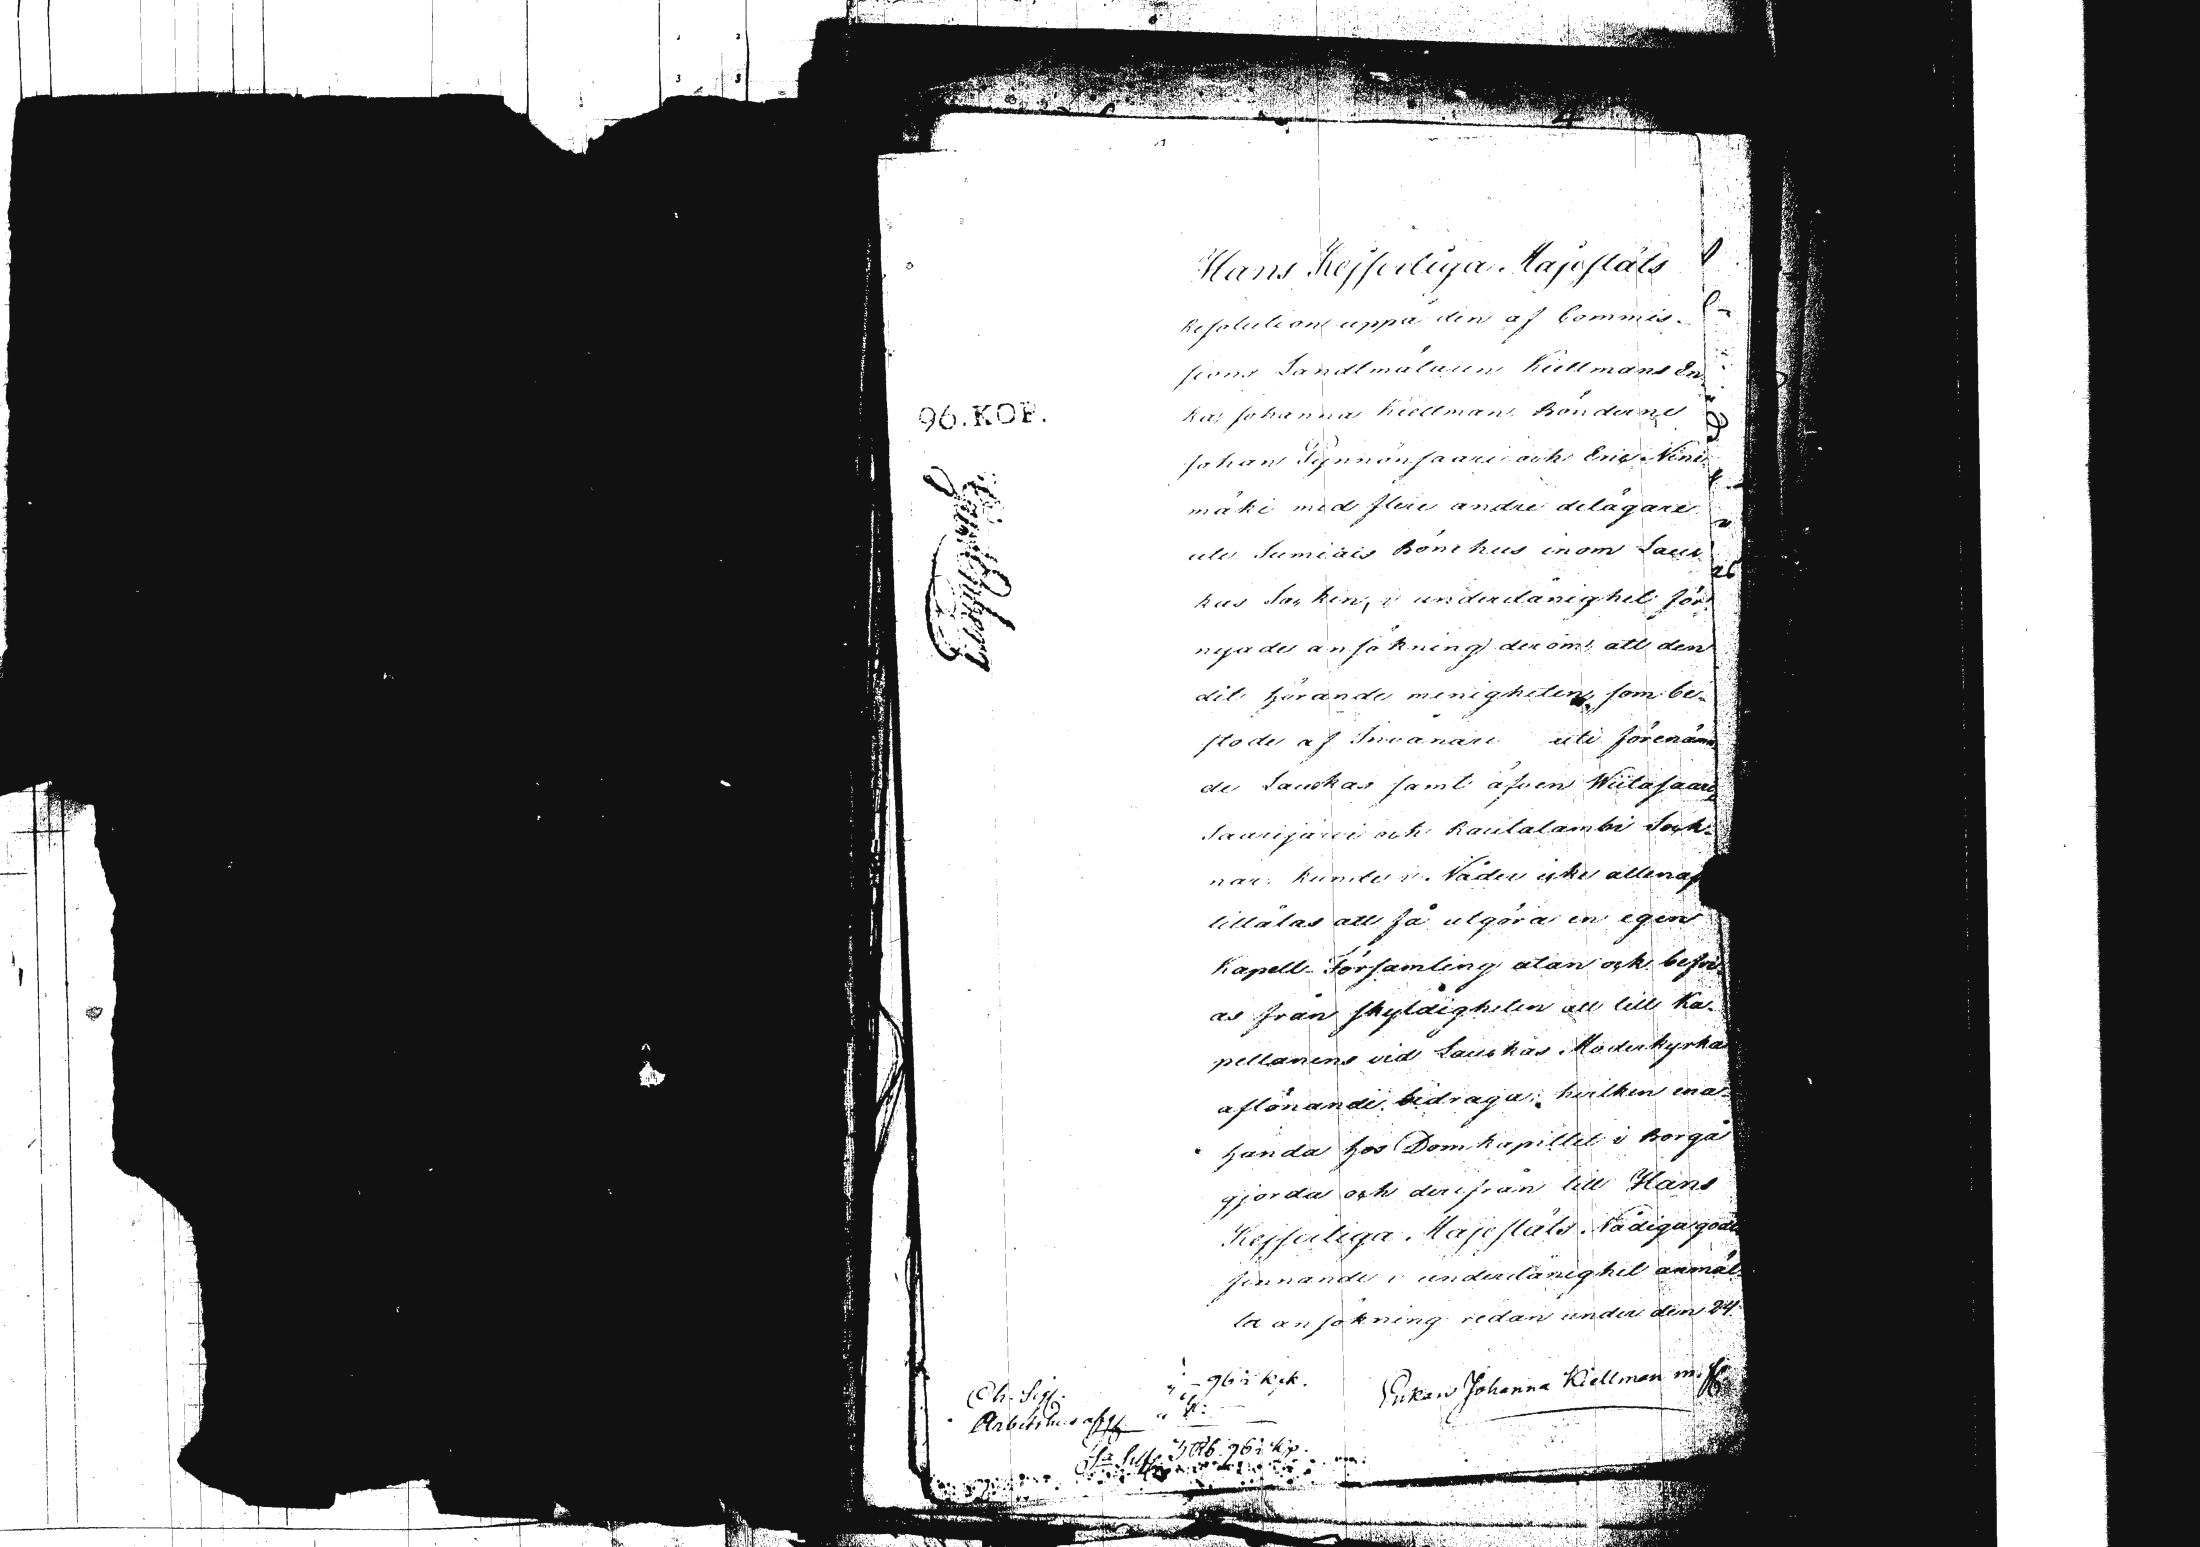 Hans Kejserliga Majestäts
Resolution uppå den af Commis-
sions Landtmätaren Kiellmans En-
ka, Johanna Kiellman, Bönderne
Johan Tynnönsaari och Eric Nini-
mäki med flere andre delägare
uti Sumiais Bönehus inom Lau-
kas Socken, i underdånighet för-
nyade ansökning derom, att den
dit hörande menigheten, som be-
stode af Invånare uti förenäm-
de Laukas samt äfven Wiitasaari,
Saarijärvi och Rautalambi Sock-
nar, kunde i Nåder icke allenast
tillåtas att få utgöra en egen
Kapell-Församling utan ock befri-
as från skyldigheten att till Ka-
pellanens vid Laukas Moderkyrka
aflönande bidraga; hvilken ena-
handa hos Domkapitlet i Borgå
gjorda och derifrån till Hans
Kejserliga Majestäts Nådiga godt-
finnande i underdånighet anmäl-
ta ansökning redan under den 24.
96. KOP.
Ch. Sig. 96 kpk.
Arbetshus afg
3 Rb. 96 kp.
Enkan Johanna Kiellman